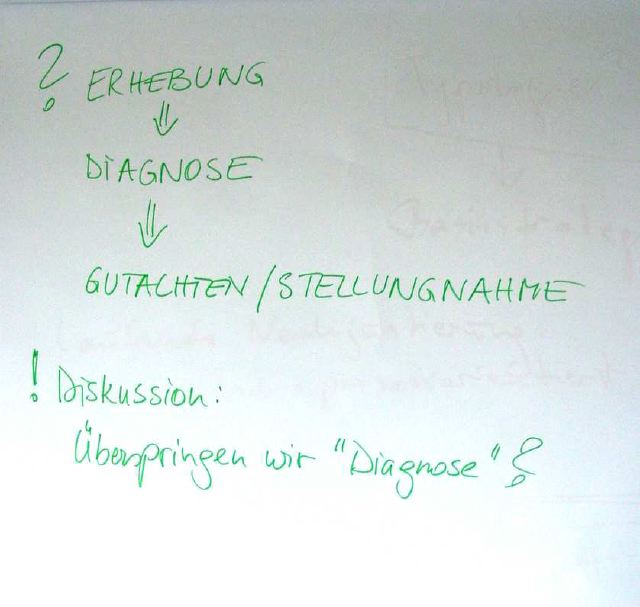 ? ERHEBUNG
⇓
DIAGNOSE
⇓
GUTACHTEN/STELLUNGNAHME
! Diskussion:
Überspringen wir "Diagnose"?